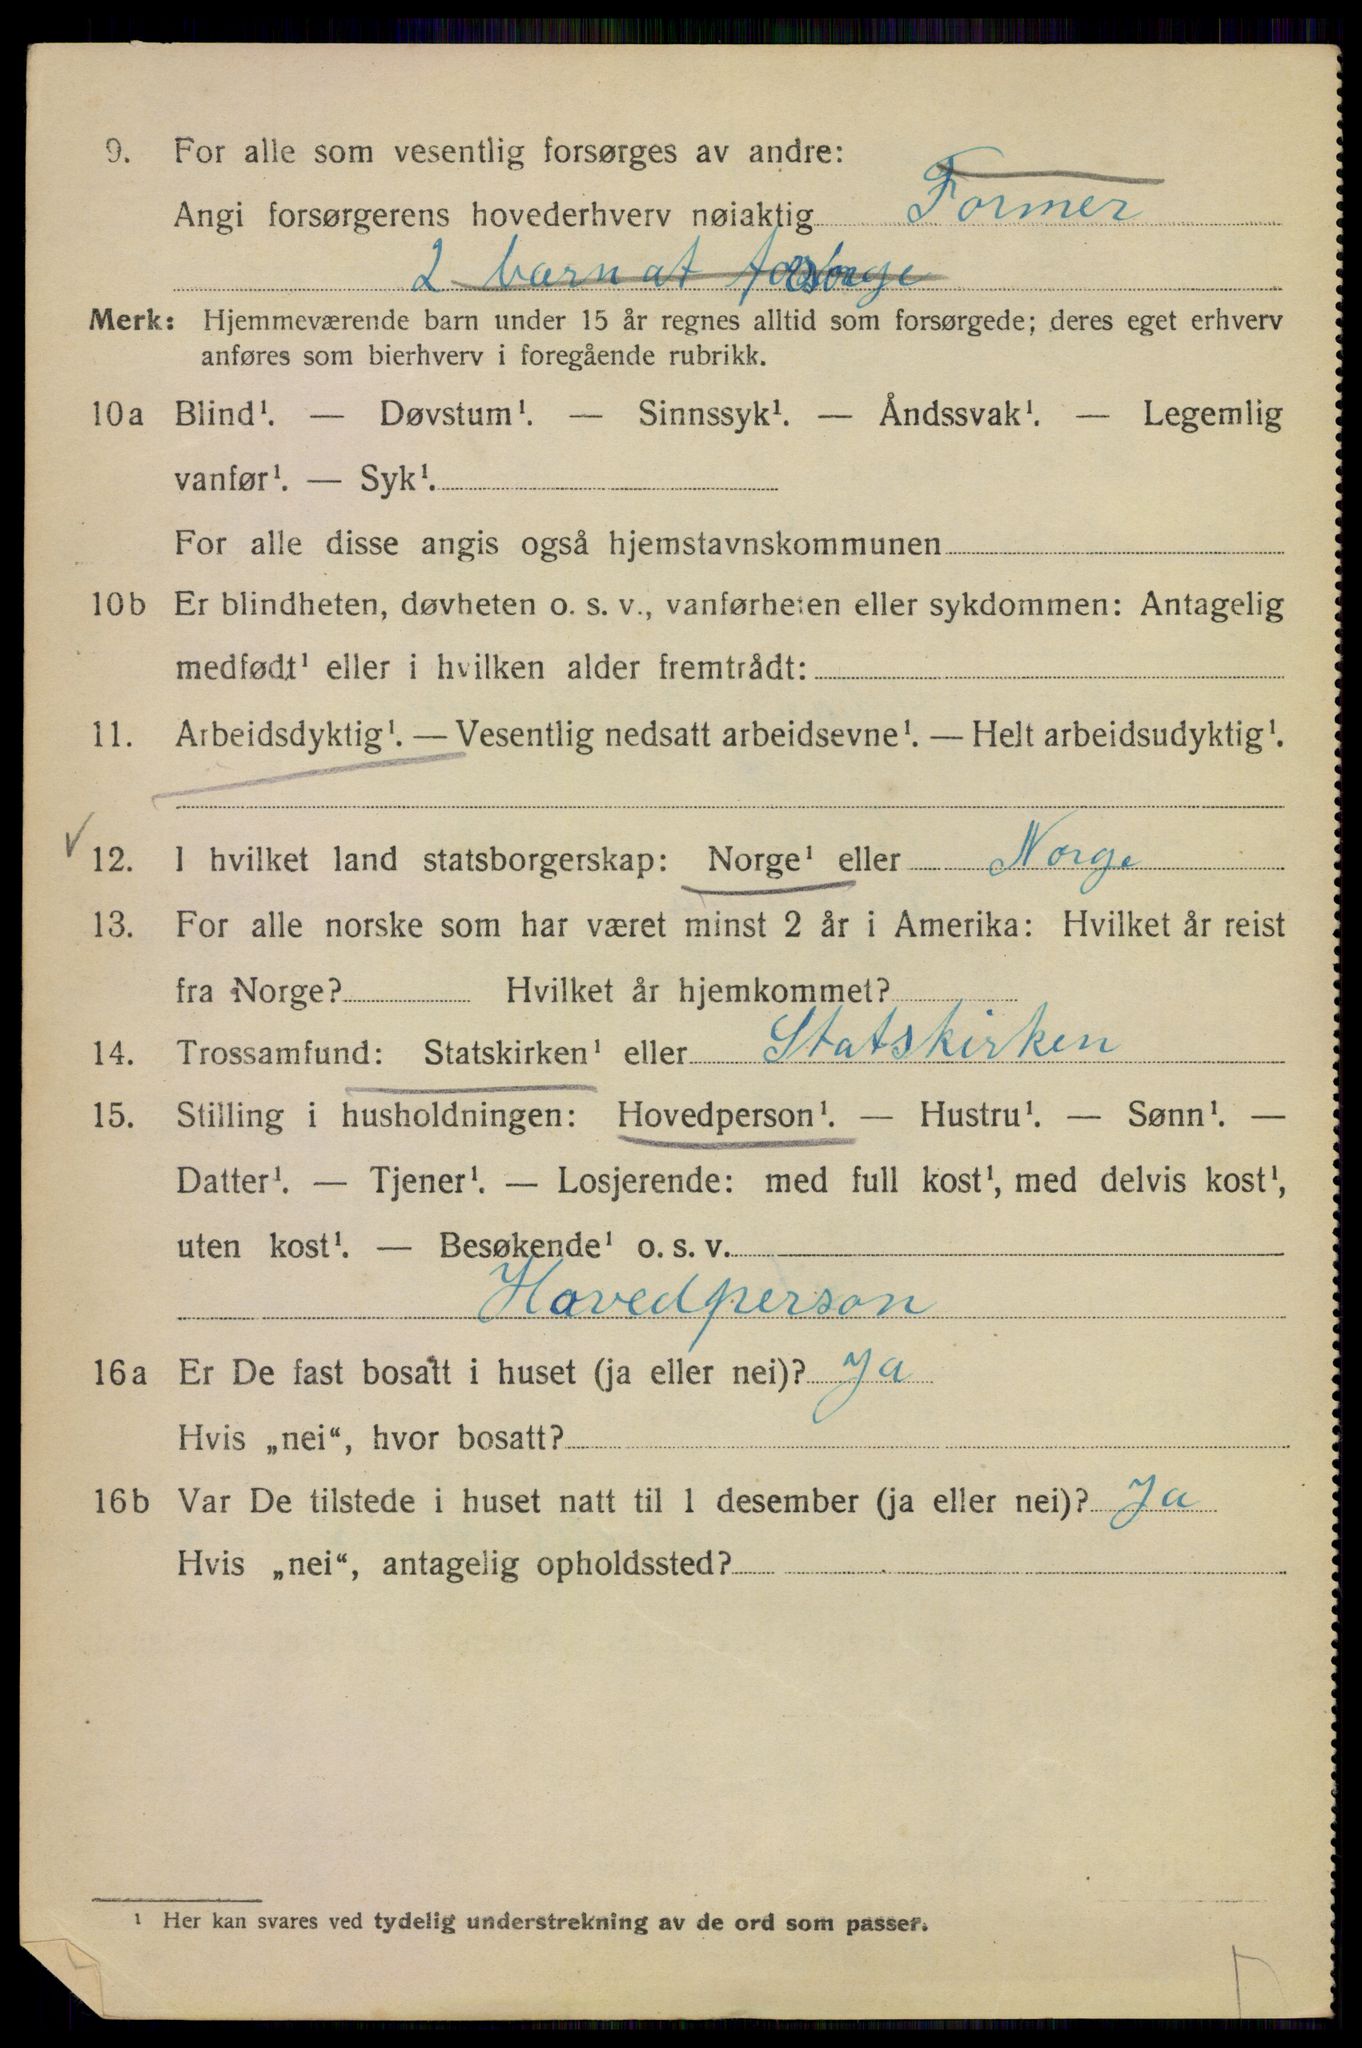 9. For alle som vesentlig forsørges av andre:
Angi forsørgerens hovederhverv nøiaktig Former
2 barn at forsørge
Merk: Hjemmeværende barn under 15 år regnes alltid som forsørgede; deres eget erhverv
anføres som bierhverv i foregående rubrikk.
10a Blind¹. — Døvstum¹. — Sinnssyk¹. — Åndssvak¹. — Legemlig
vanfør¹. — Syk¹.
For alle disse angis også hjemstavnskommunen
10b Er blindheten, døvheten o. s. v., vanførheten eller sykdommen: Antagelig
medfødt¹ eller i hvilken alder fremtrådt:
11. Arbeidsdyktig¹. — Vesentlig nedsatt arbeidsevne¹. — Helt arbeidsudyktig¹.
12. I hvilket land statsborgerskap: Norge¹ eller Norge
13. For alle norske som har været minst 2 år i Amerika: Hvilket år reist
fra Norge? Hvilket år hjemkommet?
14. Trossamfund: Statskirken¹ eller Statskirken
15. Stilling i husholdningen: Hovedperson¹. — Hustru¹. — Sønn¹. —
Datter¹. — Tjener¹. — Losjerende: med full kost¹, med delvis kost¹,
uten kost¹. — Besøkende¹ o. s. v.
Hovedperson
16a Er De fast bosatt i huset (ja eller nei)? Ja
Hvis „nei“, hvor bosatt?
16b Var De tilstede i huset natt til 1 desember (ja eller nei)? Ja
Hvis „nei“, antagelig opholdssted?
¹ Her kan svares ved tydelig understrekning av de ord som passer.